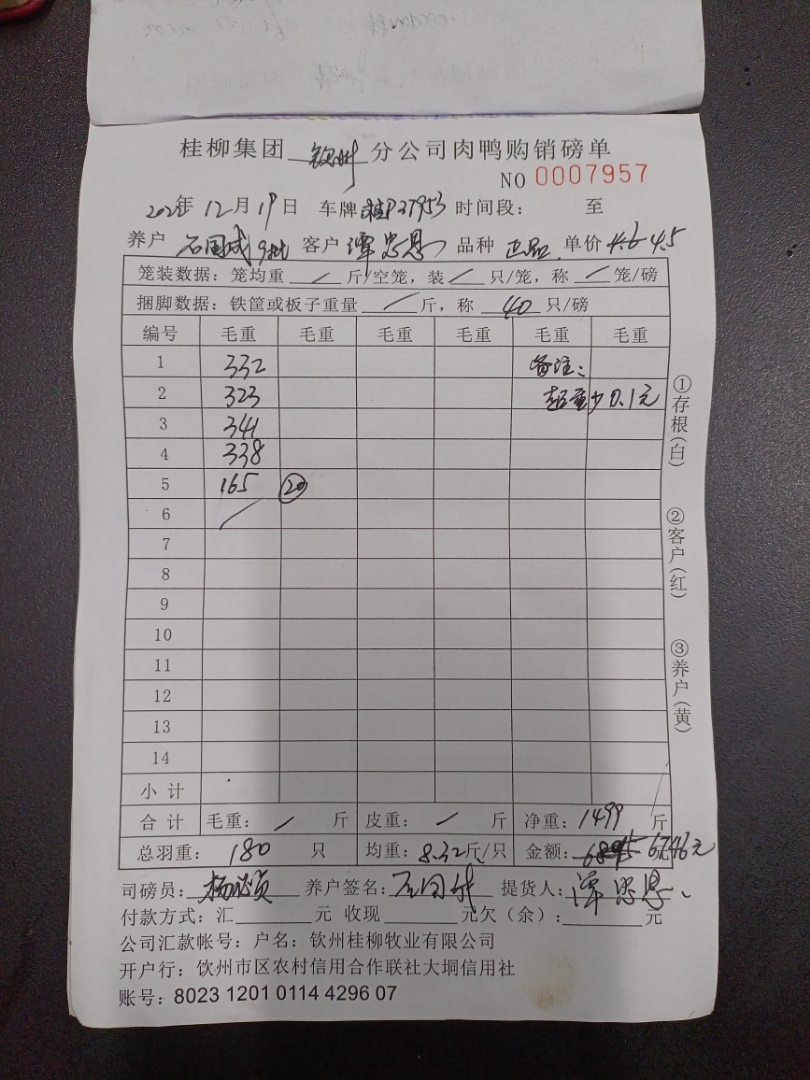 桂柳集团 钦州 分公司肉鸭购销磅单
NO 0007957
202 年 12月19日 车牌 桂P27953 时间段: 至
养户 石国成 9批 客户 谭忠恩 品种 正品 单价 4.6 4.5
笼装数据: 笼均重 / 斤/空笼, 装 / 只/笼, 称 / 笼/磅
捆脚数据: 铁筐或板子重量 / 斤, 称 40 只/磅
编号 毛重 毛重 毛重 毛重 毛重 毛重
1 332 备注:
2 323 超重少0.1元
3 341
4 338
5 165 ⑳
6 /
7
8
9
10
11
12
13
14
小计
合计 毛重: / 斤 皮重: / 斤 净重: 1499 斤
总羽重: 180 只 均重: 8.32斤/只 金额: 6746元
司磅员: 养户签名: 石国成 提货人: 谭忠恩
付款方式: 汇 元 收现 元欠(余): 元
公司汇款帐号: 户名: 钦州桂柳牧业有限公司
开户行: 钦州市区农村信用合作联社大垌信用社
账号: 8023 1201 0114 4296 07
①存根(白)
②客户(红)
③养户(黄)